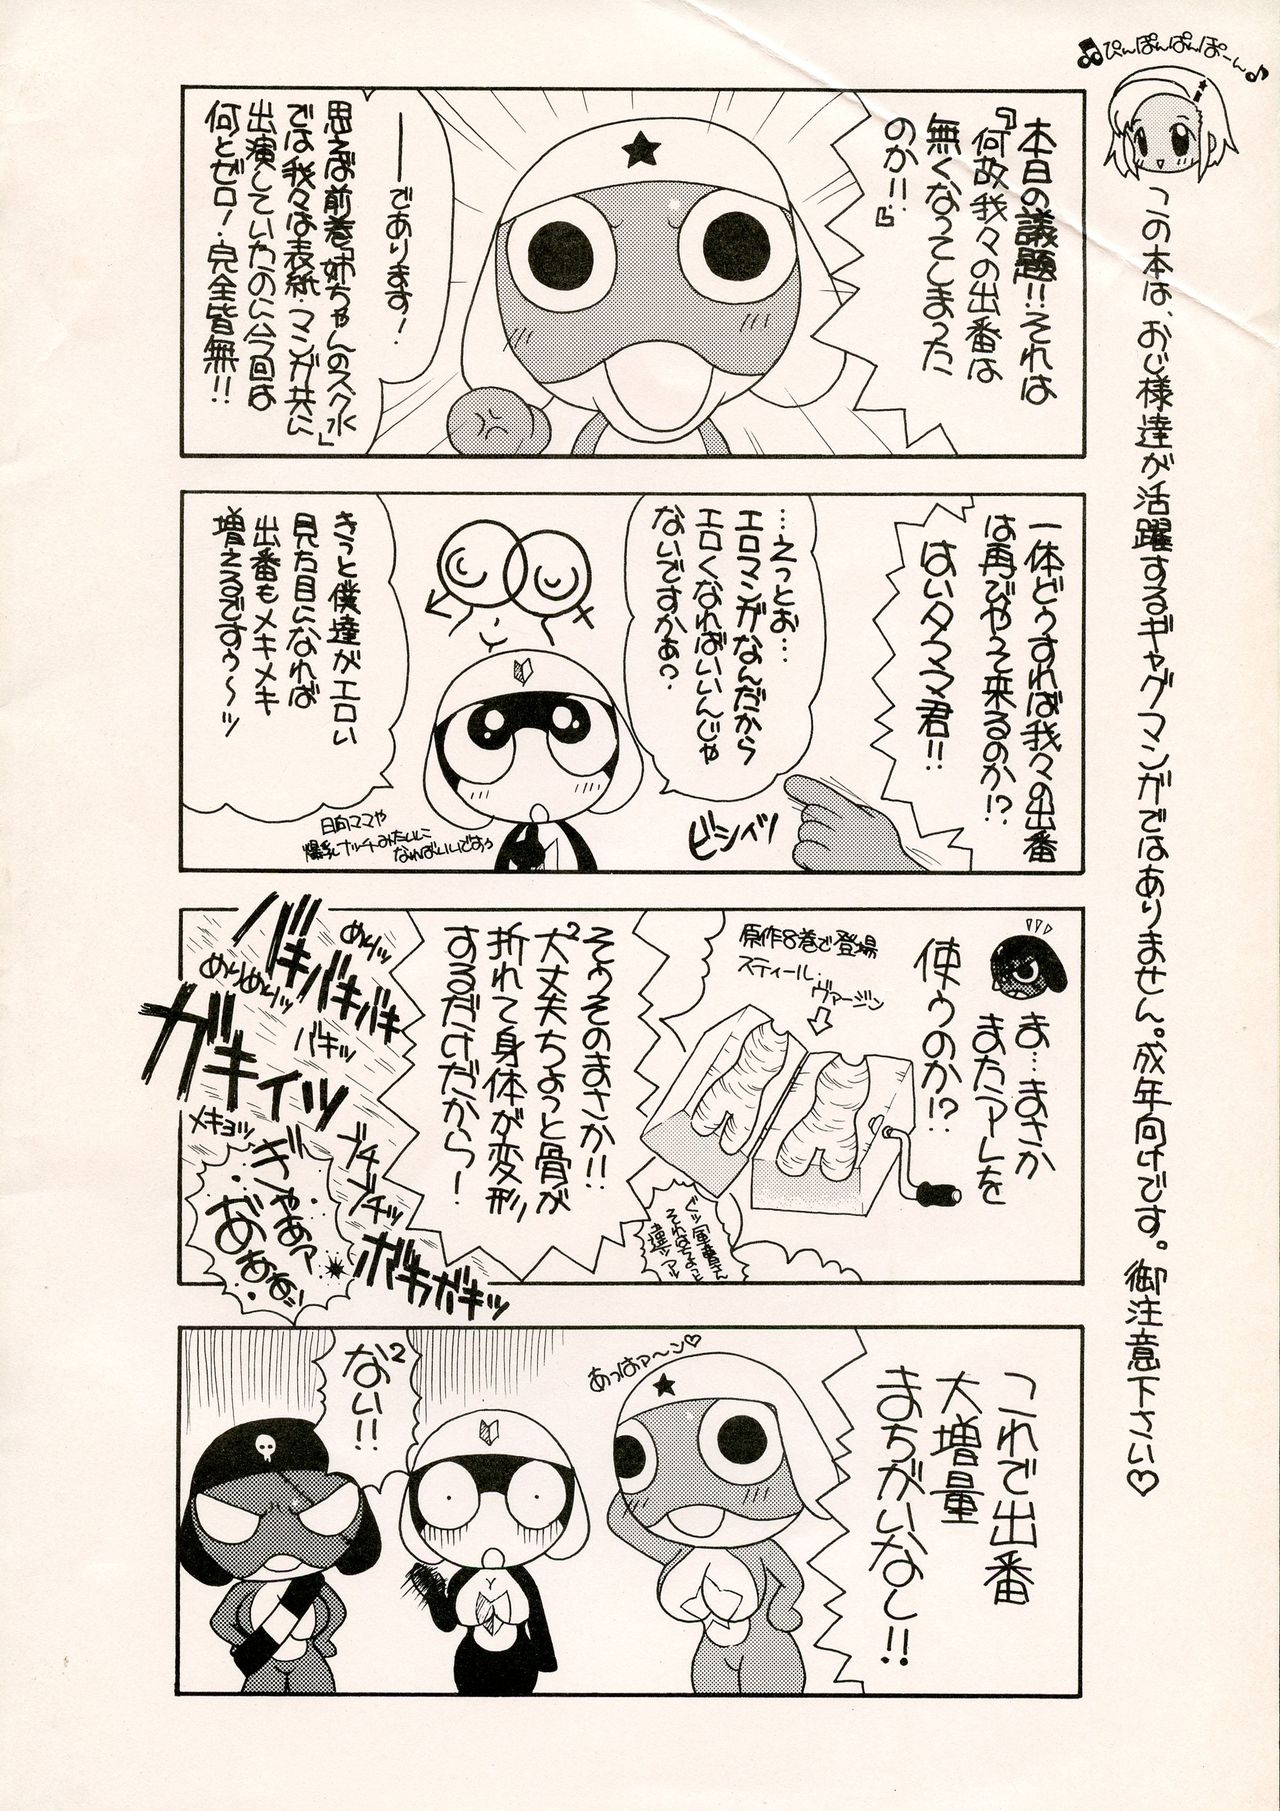 ♪ぴんぽんぱんぽーん♪
この本は、おじ様達が活躍するギャグマンガではありません。成年向けです。御注意下さい♡
本日の議題!!それは
『何故我々の出番は
無くなってしまった
のか!!』
――であります!
思えば前巻『姉ちゃんのスク水』
では我々は表紙・マンガ共に
出演していたのに今回は
何とゼロ!完全皆無!!
一体どうすれば我々の出番
は再びやって来るのか!?
はいタママ君!!
ビシィッ
…えっとぉ…
エロマンガなんだから
エロくなればいいんじゃ
ないですかぁ?
きっと僕達がエロい
見た目になれば
出番もメキメキ
増えるですぅ〜ッ
日向ママや
爆乳ナッチーみたいに
なればいいですぅ
ま…まさか
またアレを
使うのか!?
原作8巻で登場
スティール・
ヴァージン
ぐッ軍曹さん
それはちょっと
違ッアッ
そぅそのまさか!!
大2丈夫ちょっと骨が
折れて身体が変形
するだけだから!
めりッ
バキバキバキ
めりめりッ
バキッ
ガキィッ
メキョッ
ブチブチッ
ぎゃあァ
あぁぁ!!
ボキボキッ
これで出番
大増量
まちがいなし!!
あっはァ〜ン♡
ない2!!